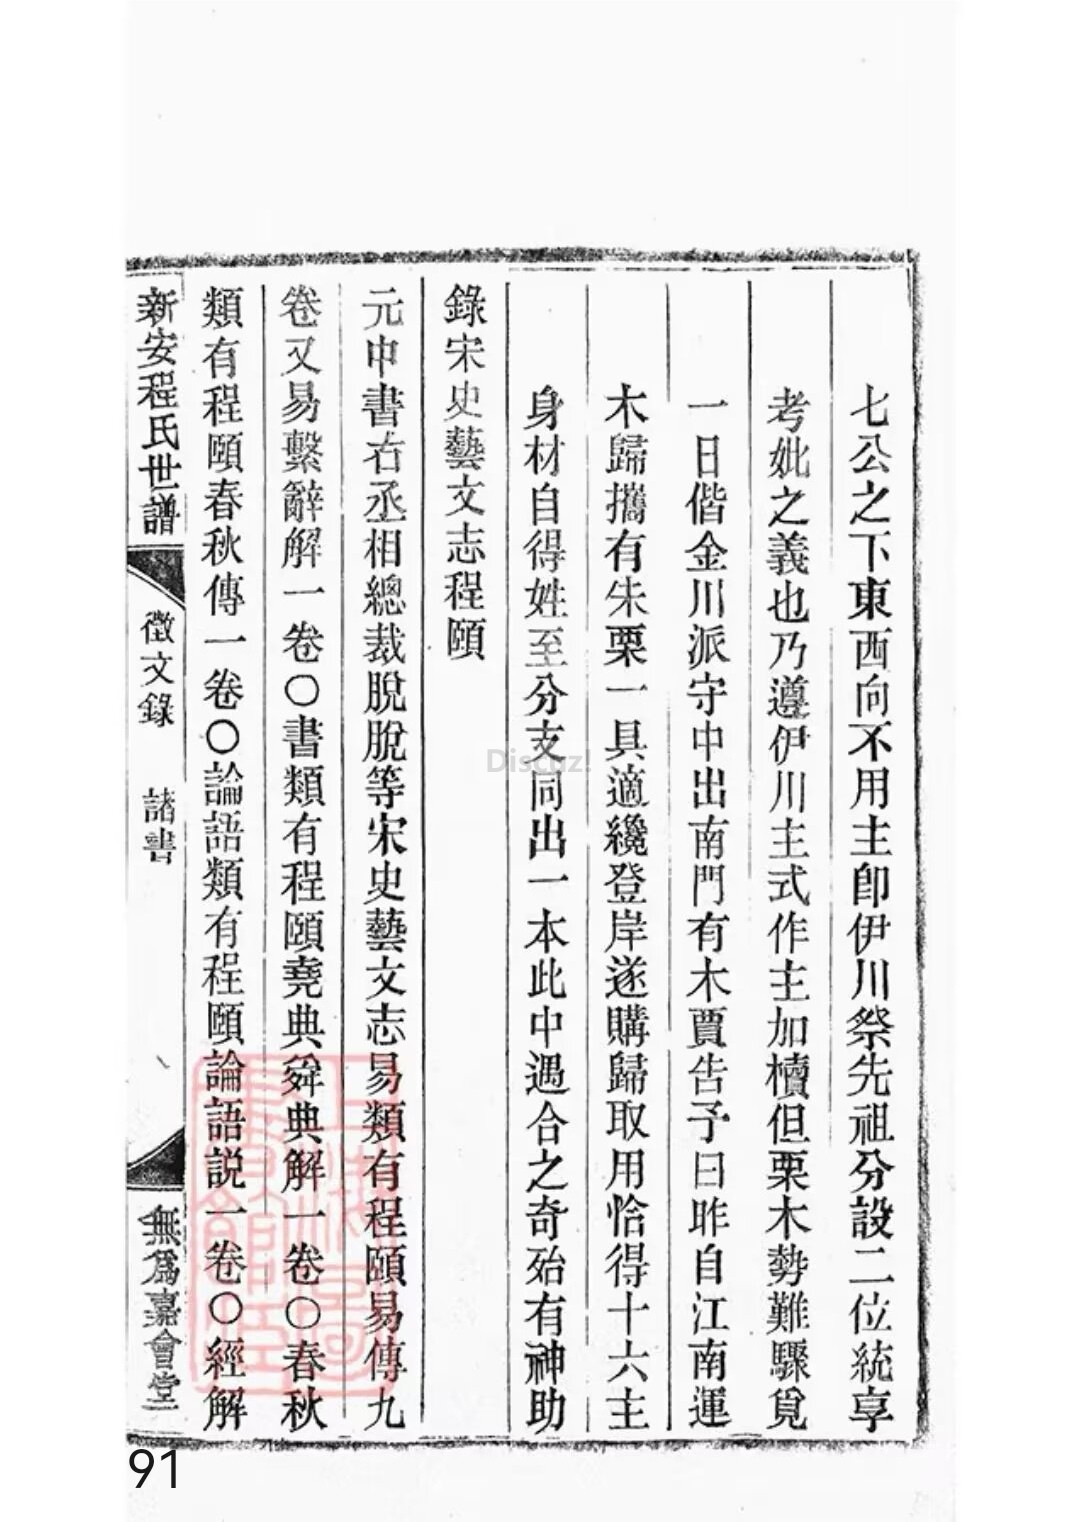 七公之下東西向不用主卽伊川祭先祖分設二位統享
考妣之義也乃遵伊川主式作主加櫝但栗木勢難驟覓
一日偕金川派守中出南門有木賈告予曰昨自江南運
木歸攜有朱栗一具適纔登岸遂購歸取用恰得十六主
身材自得姓至分支同出一本此中遇合之奇殆有神助
錄宋史藝文志程頤
元中書右丞相總裁脫脫等宋史藝文志易類有程頤易傳九
卷又易繫辭解一卷〇書類有程頤堯典舜典解一卷〇春秋
類有程頤春秋傳一卷〇論語類有程頤論語説一卷〇經解
新安程氏世譜
徵文錄 諸書
無爲嘉會堂
Discuz!
91